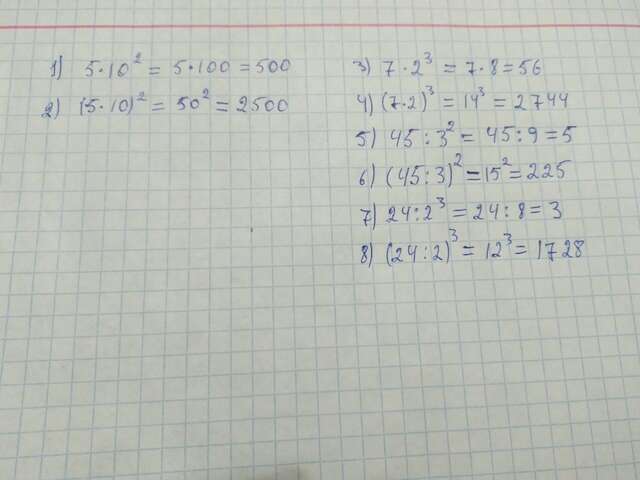 1) 5·10² = 5·100 = 500
2) (5·10)² = 50² = 2500
3) 7·2³ = 7·8 = 56
4) (7·2)³ = 14³ = 2744
5) 45:3² = 45:9 = 5
6) (45:3)² = 15² = 225
7) 24:2³ = 24:8 = 3
8) (24:2)³ = 12³ = 1728